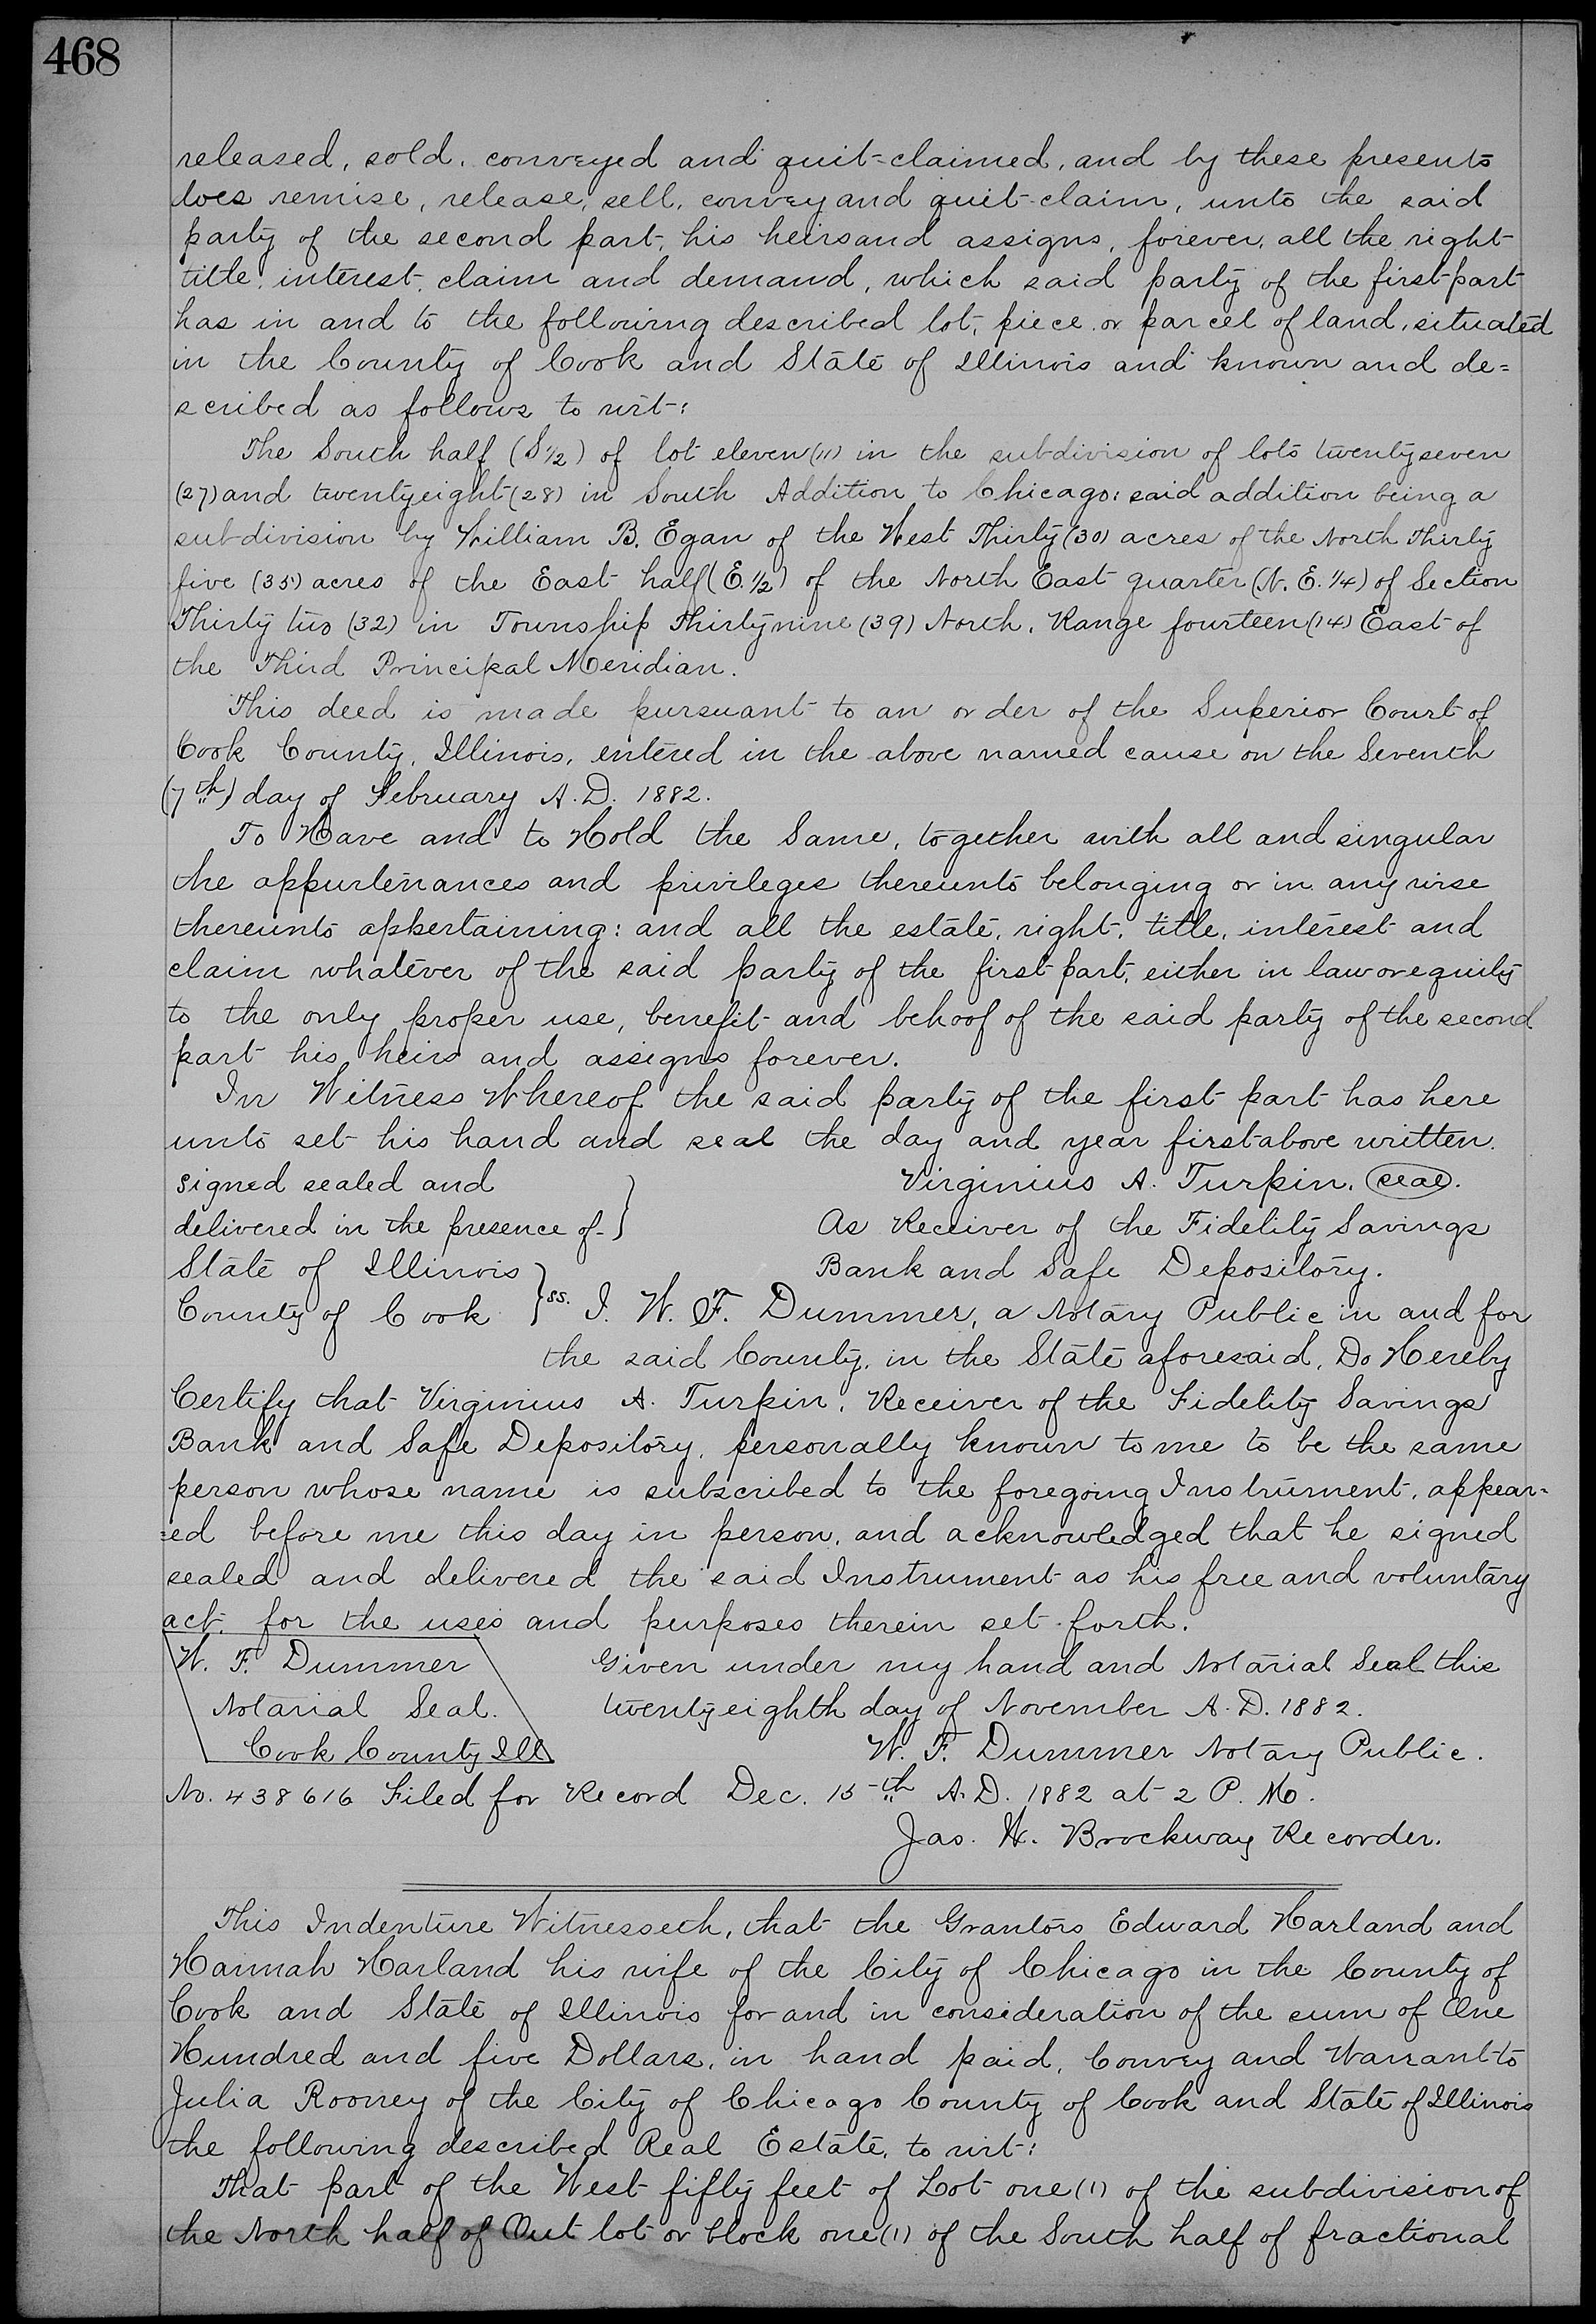 468
released, sold, conveyed and quit-claimed, and by these presents
does remise, release, sell, convey and quit-claim, unto the said
party of the second part, his heirs and assigns, forever, all the right
title, interest, claim and demand, which said party of the first part
has in and to the following described lot, piece or parcel of land, situated
in the County of Cook and State of Illinois and known and de=
scribed as follows to wit:
The South half (S 1/2) of lot eleven (11) in the subdivision of lots twenty seven
(27) and twenty eight (28) in South Addition to Chicago: said addition being a
subdivision by William B. Egan of the West Thirty (30) acres of the North Thirty
five (35) acres of the East half (E. 1/2) of the North East quarter (N. E. 1/4) of Section
Thirty two (32) in Township Thirty nine (39) North, Range fourteen (14) East of
the Third Principal Meridian.
This deed is made pursuant to an order of the Superior Court of
Cook County, Illinois, entered in the above named cause on the Seventh
(7th) day of February A.D. 1882.
To Have and to Hold the Same, together with all and singular
the appurtenances and privileges thereunto belonging or in any wise
thereunto appertaining: and all the estate, right, title, interest and
claim whatever of the said party of the first part, either in law or equity
to the only proper use, benefit and behoof of the said party of the second
part his heirs and assigns forever.
In Witness Whereof the said party of the first part has here
unto set his hand and seal the day and year first above written.
signed sealed and } Virginius A. Turpin. (seal).
delivered in the presence of } As Receiver of the Fidelity Savings
State of Illinois } Bank and Safe Depository.
County of Cook } ss. I. W. F. Dummer, a Notary Public in and for
the said County, in the State aforesaid, Do Hereby
Certify that Virginius A. Turpin, Receiver of the Fidelity Savings
Bank and Safe Depository, personally known to me to be the same
person whose name is subscribed to the foregoing Instrument, appear=
=ed before me this day in person, and acknowledged that he signed
sealed and delivered the said Instrument as his free and voluntary
act, for the uses and purposes therein set forth.
W. F. Dummer Given under my hand and Notarial Seal this
Notarial Seal. twenty eighth day of November A.D. 1882.
Cook County Ill W. F. Dummer Notary Public.
No. 438616 Filed for Record Dec. 15th A.D. 1882 at 2 P. M.
Jas. W. Brockway Recorder.
This Indenture Witnesseth, that the Grantors Edward Harland and
Hannah Harland his wife of the City of Chicago in the County of
Cook and State of Illinois for and in consideration of the sum of One
Hundred and five Dollars, in hand paid, Convey and Warrant to
Julia Rooney of the City of Chicago County of Cook and State of Illinois
the following described Real Estate, to wit:
That part of the West fifty feet of Lot one (1) of the subdivision of
the North half of Out lot or block one (1) of the South half of fractional